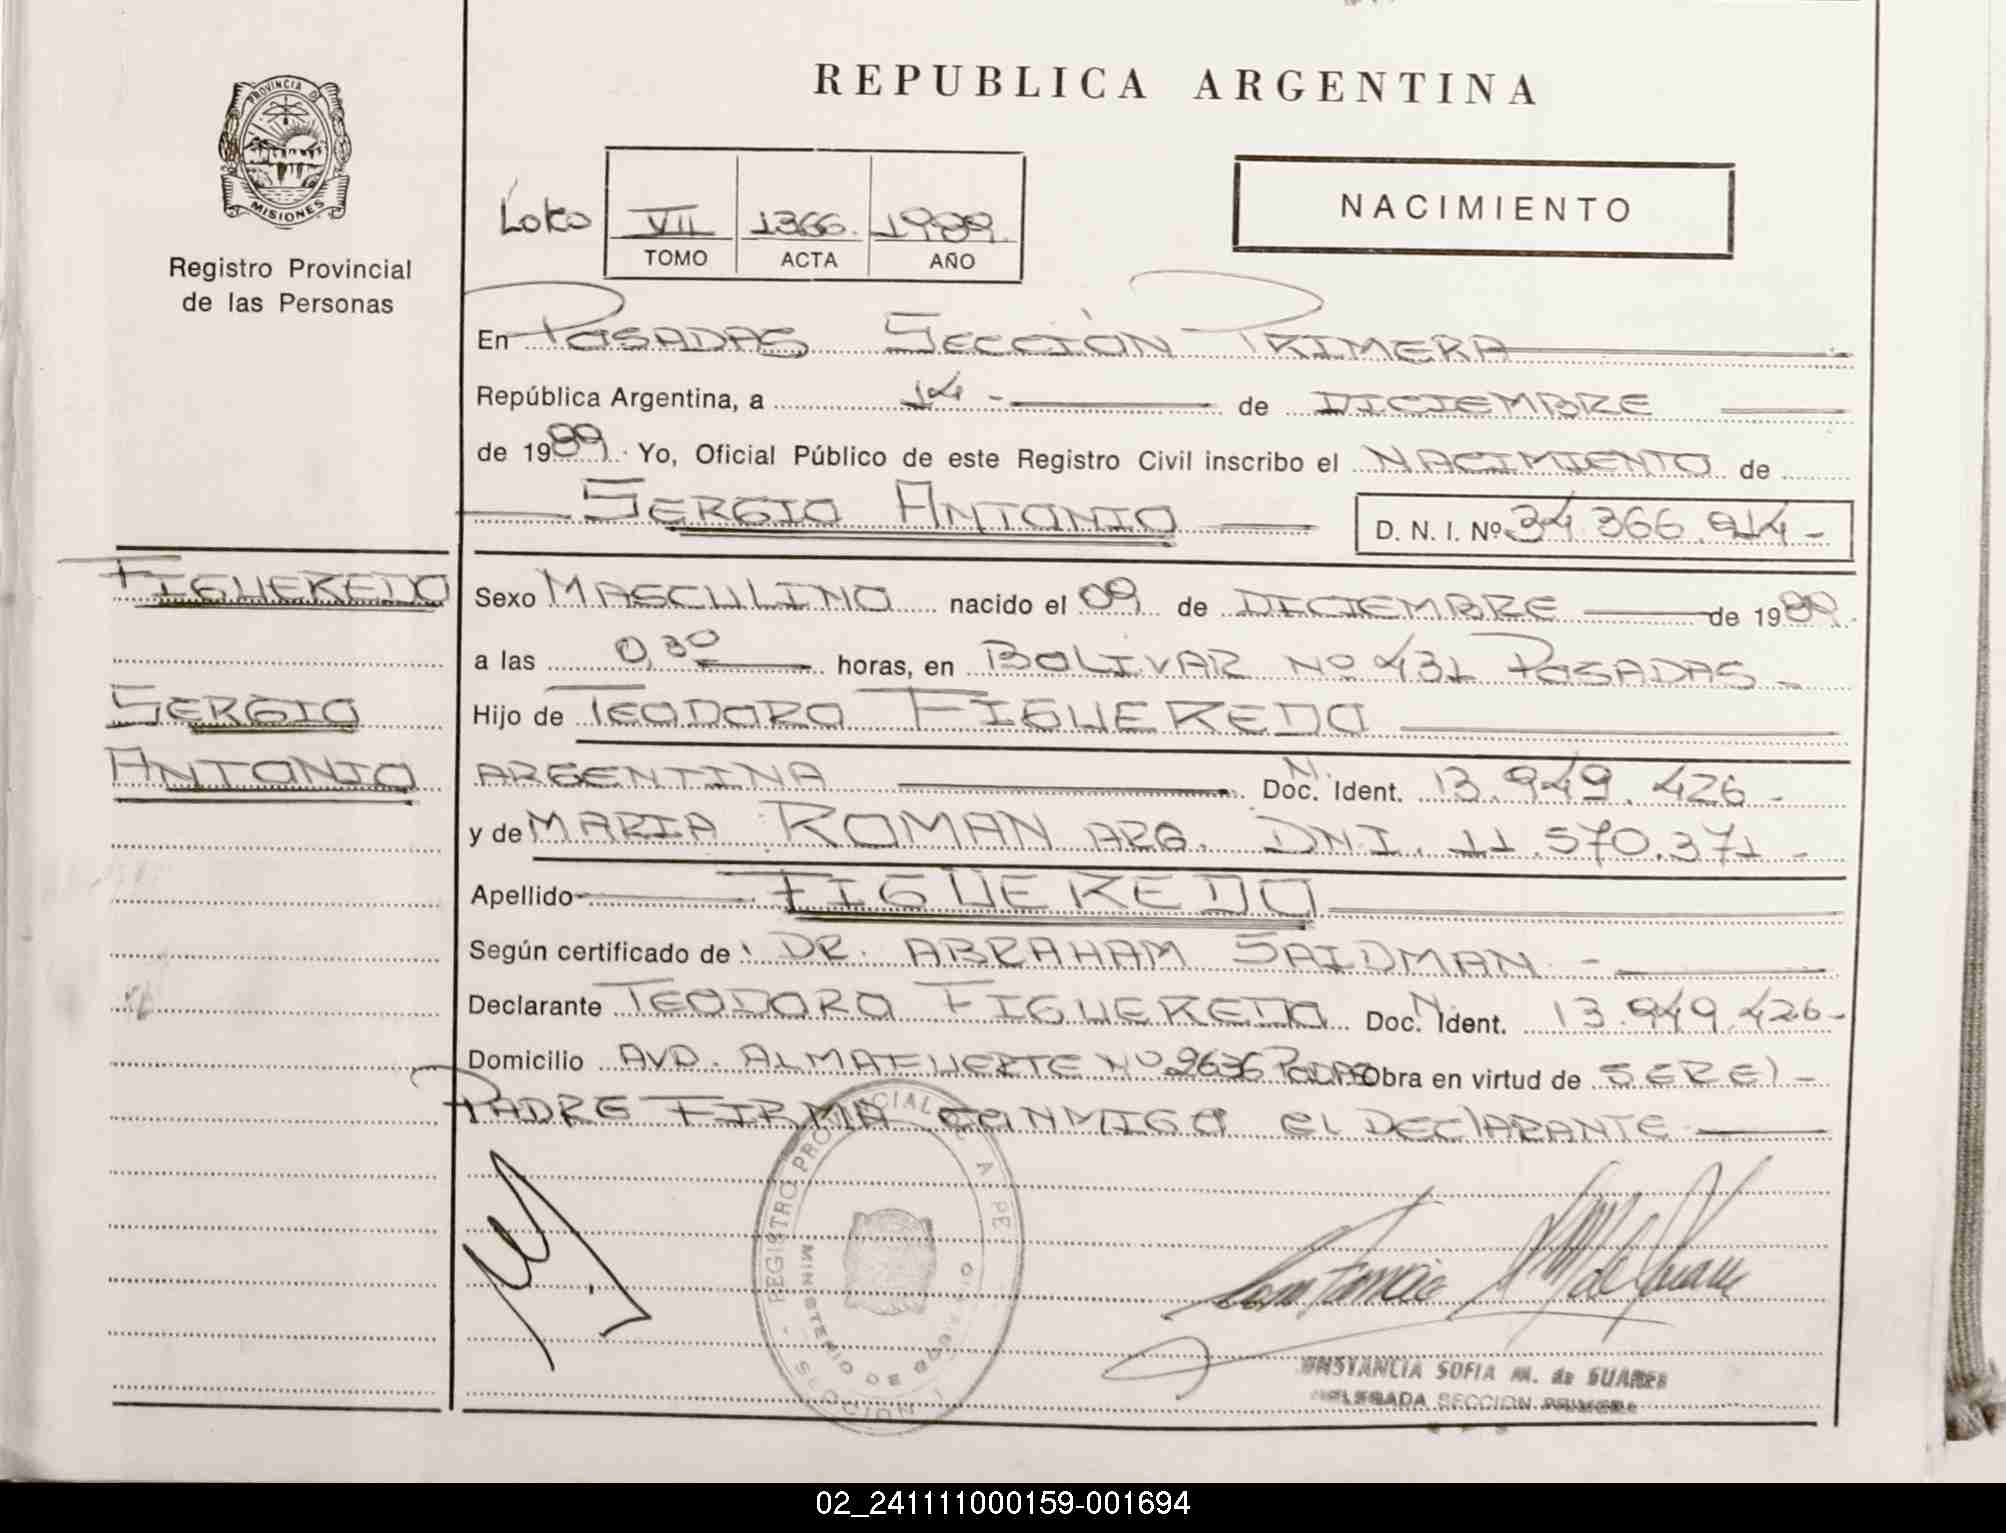 REPUBLICA ARGENTINA
PROVINCIA DE
MISIONES
Registro Provincial
de las Personas
VII 1366. 1989.
TOMO ACTA AÑO
NACIMIENTO
En POSADAS SECCIÓN PRIMERA
República Argentina, a 14 - de DICIEMBRE
de 1989. Yo, Oficial Público de este Registro Civil inscribo el NACIMIENTO de
SERGIO ANTONIO
D. N. I. Nº 34.366.914-
FIGUEREDO
SERGIO
ANTONIO
Sexo MASCULINO nacido el 09 de DICIEMBRE de 1989.
a las 0,30 horas, en BOLIVAR Nº 431 POSADAS -
Hijo de TEODORO FIGUEREDO
ARGENTINA Doc. N. Ident. 13.949.426-
y de MARIA ROMAN ARG. DNI. 11.570.371-
Apellido FIGUEREDO
Según certificado de: DR. ABRAHAM SAIDMAN -
Declarante TEODORO FIGUEREDO Doc. N. Ident. 13.949.426-
Domicilio AVD. ALMAFUERTE Nº 2636 Obra en virtud de SER El -
PADRE FIRMA CONMIGO El DEClARANTE
REGISTRO PROVINCIAL
MINISTERIO DE GOB
CONSTANCIA SOFIA M. de SUAREZ
DELEGADA SECCION PRIMERA
02_241111000159-001694